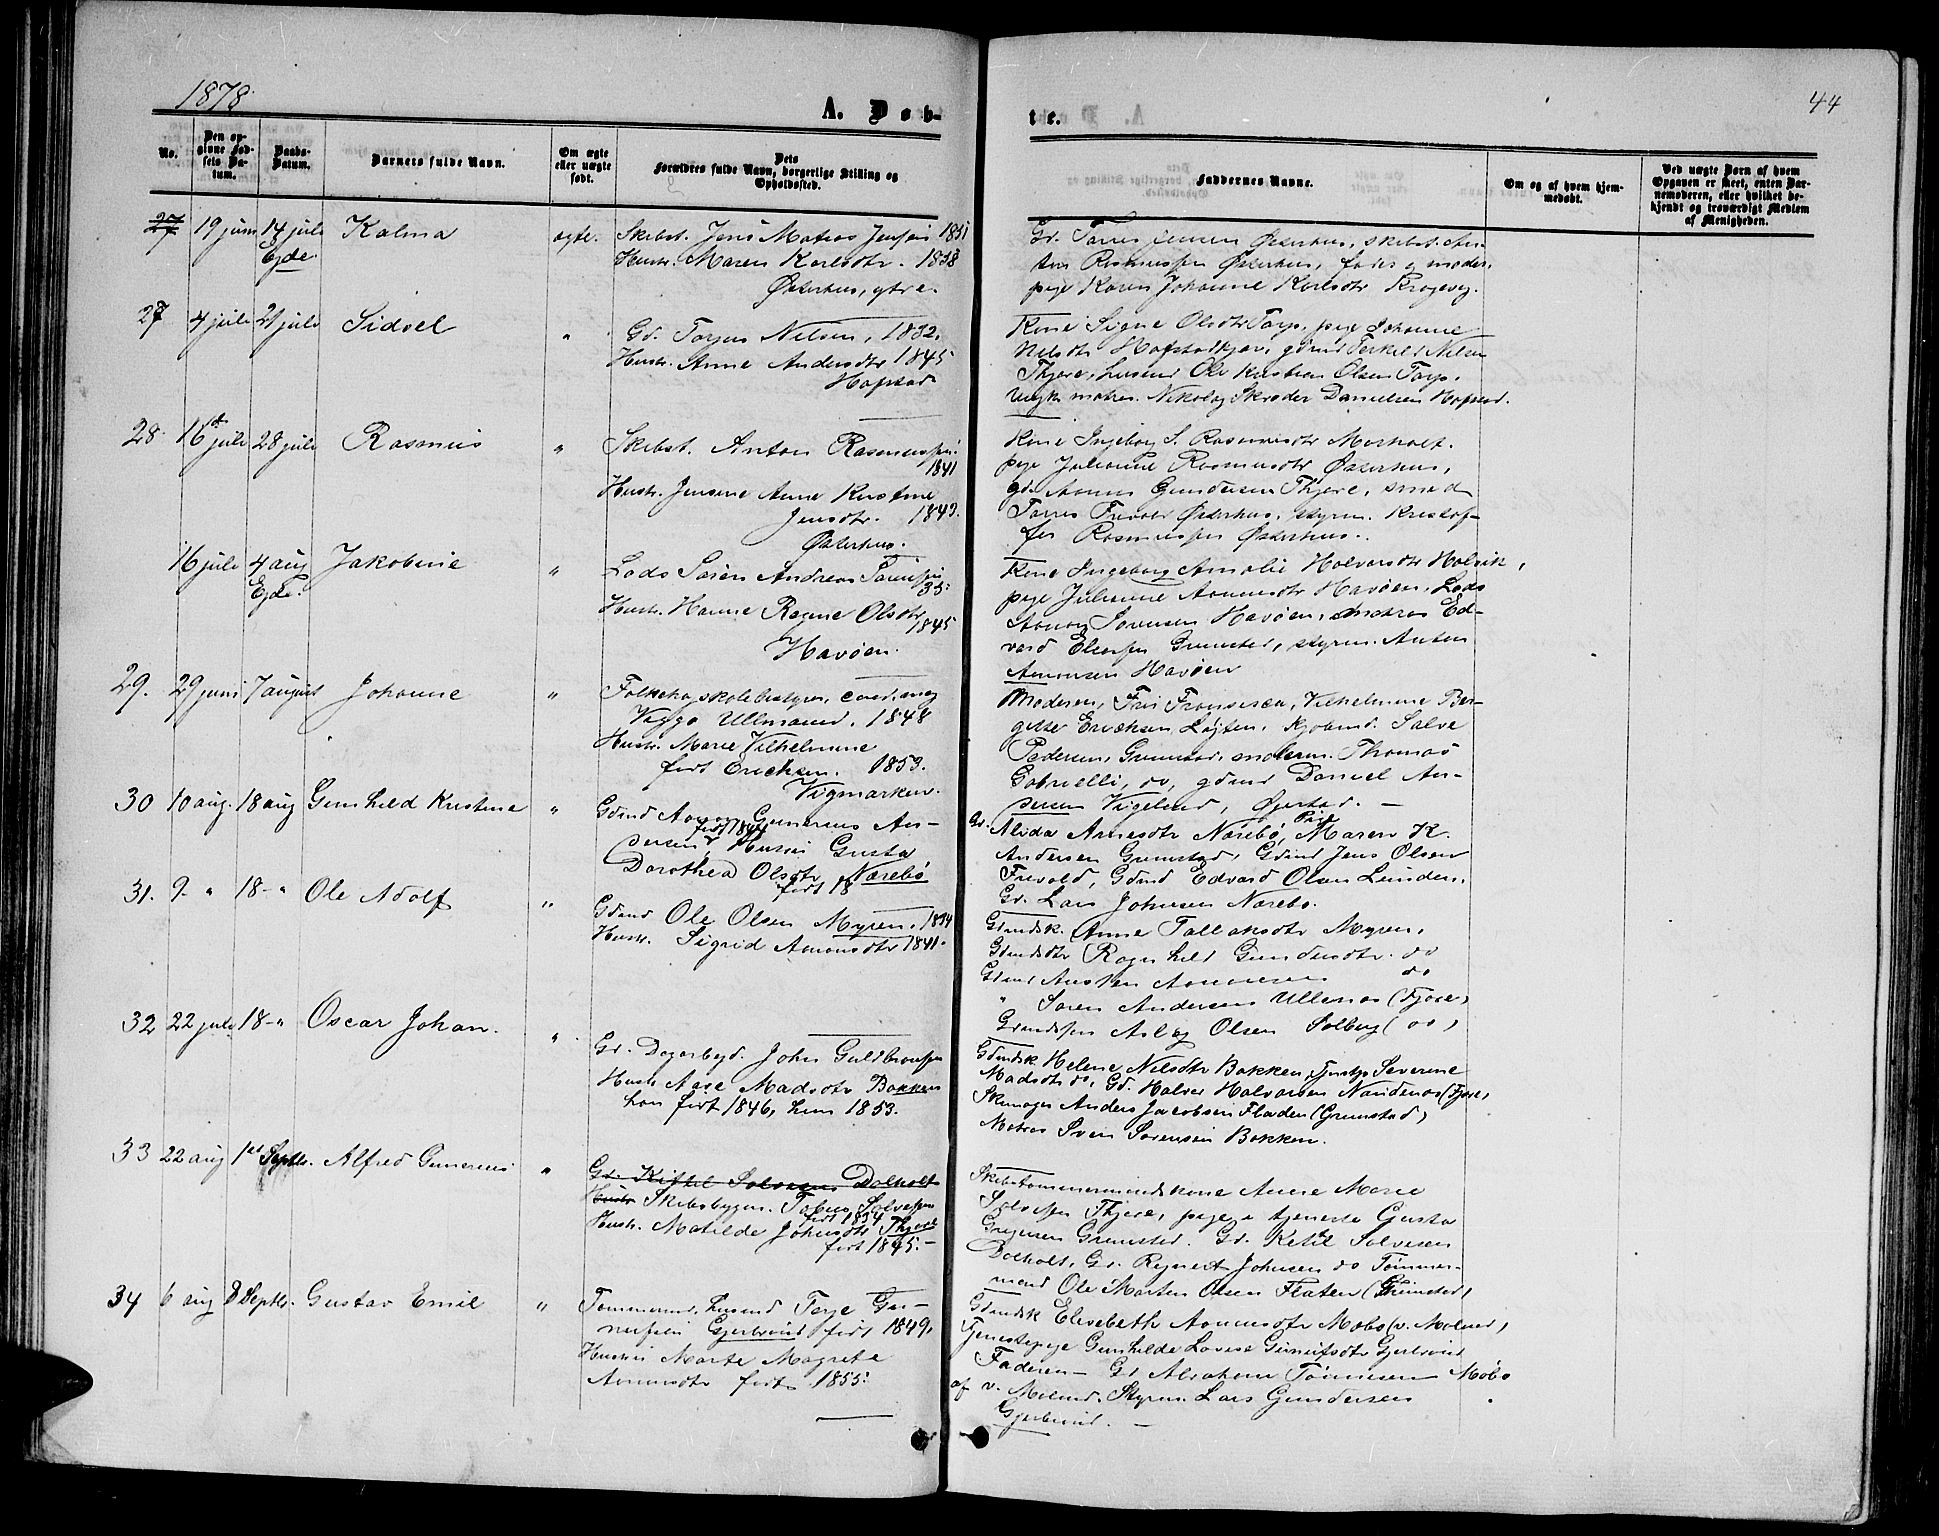 1878.
A. Døb-
te.
44
No.
Den op-
givne Fød-
sels Da-
tum.
Daabs-
Datum.
Barnets fulde Navn.
Om ægte
eller uægte
født.
Dets
Forældres fulde Navn, borgerlige Stilling og
Opholdssted.
Faddernes Navne.
Om og af hvem hjem-
medøbt.
Ved uægte Børn af hvem
Opgaven er skeet, enten Bar-
nemoderen, eller hvilket be-
kjendt og troværdigt Medlem
af Menigheden.
27 19 juni 14 juli Kalma ægte. Skibst. Jens Matias Jensen 1851
Eyde. Hustr. Maren Karlsdtr. 1858
Østerhus, ytre.
Gd. Tarres Jensen Østerhus, skibst. An-
ton Rasmussen Østerhus, fader og moder,
pige Karen Johanne Karlsdtr Krogevig.
27 4 juli 21 juli Sidsel " Gd. Torjus Nilsen, 1832.
Hustr. Anne Andersdtr 1845
Hofstad
Kone Signe Olsdtr Torp, pige Johanne
Nilsdtr Hofstadkjær, gdmd Terkild Nilsen
Fjære, husmd Ole Kristian Olsen Torp.
Ungk. matros. Nikolay Skrøder Danielsen Hofstad.
28 16de juli 28 juli Rasmus " Skibst. Anton Rasmussen.
1841
Hustr. Jensine Anne Kirstine
Jensdtr. 1849.
Østerhus.
Kone Ingeborg S. Rasmusdtr Morholt.
pige Julianne Rasmusdtr Østerhus,
gd. Aanon Gundersen Fjære, smed
Tarres Frivold Østerhus, styrm. Kristof-
fer Rasmussen Østerhus.
16 juli 4 aug Jakobine " Lods Søren Andreas Tønnesen
35.
Eyde. Hustr. Hanne Ragne Olsdtr
1845
Havøen.
Kone Ingeborg Amalie Halvorsdtr Holvik,
pige Julianne Aanonsdtr Havøen, Lods
Aanon Sørensen Havøen, matros Ed-
vard Eliassen Grimstad, styrm. Anton
Aanonsen Havøen
29. 29 juni 7 august Johanne " Folkehøjskolebestyrer, cand. mag
Viggo Ullmann, 1848
Hustr. Marie Vilhelmine
født Erichsen. 1853.
Vigmarken.
Moderen, Frk Fransisca, Vilhelmine Ber-
gitte Ericksen Løgten, Kjøbmd. Salve
Pedersen, Grimstad, malerm. Thomas
Gabrielli, do, gdmd Daniel An-
dersen Vigeland, Øjestad.
30 10 aug. 18 aug Gunhild Kristine " Gdmd Aanon Gunerius An-
født 1844
dersen, Hustru Gusta
Dorothea Olsdtr Nærebø
født 18
Gd. Alida Arnesdtr Nærebø, Pige Maren K.
Andersen Grimstad, Gdmd Jens Olsen
Frivold, Gdmd Edvard Olsen Lunden,
Gd. Lars Johnsen Nærebø.
31. 9 " 18 " Ole Adolf " Gdmd Ole Olsen Myren, 1834
Hustr. Sigrid Aanonsdtr 1841.
Gdmdsk. Anne Tallaksdtr Myren,
Gdmdsdtr Ragnhild Gundersdtr. do
Gdmd Austen Aanonsen do
" Søren Andersen Ullenæs (Fjære)
Gdmdssøn Aslag Olsen Solberg (do)
32 22 juli 18 " Oscar Johan. " Gd. Dagarbejd. John Guldbrandsen
Hustr Aase Madsdtr Bakken
han født 1846, hun 1853.
Gdmdsk. Helene Nilsdtr Bakken, Tjenstp. Severine
Madsdtr do, Gd. Halvor Halvorsen Nandenæs (Fjære,
Skomager Anders Jacobsen Fladen (Grimstad)
Matros Sven Sørensen Bakken.
33 22 aug 1ste Septbr. Alfred Gunerius " Gd. Kittel Salvesen Dolholt
Hustr Skibsbygm. Tobias Salvesen
født 1834
Hustr. Matilde Johnsdtr Fjære
født 1845.
Skibstømmermandskone Anne Marie
Salvesen Fjære, pige i tjeneste Gusta
Gregersen Grimstad. Gd. Ketil Salvesen
Dolholt, Gd. Reinert Johnsen do Tømmer-
mand Ole Morten Olsen Flaten (Grimstad)
34 6 aug 8 Septbr. Gustav Emil " Tømmermd, husmd Terje Gu-
nufsen Gjerbrond født 1849.
Hustru Marte Magrete
Aanonsdtr født 1855.
Gdmdsk Elisebeth Aanonsdtr Møbø (v. Moland)
Tjenestepige Gunhilde Lovise Gunufsdtr Gjerbrond
Faderen - Gd Abraham Tønnesen Møbø
af v. Moland. Styrm. Lars Gundersen
Gjerbrond.